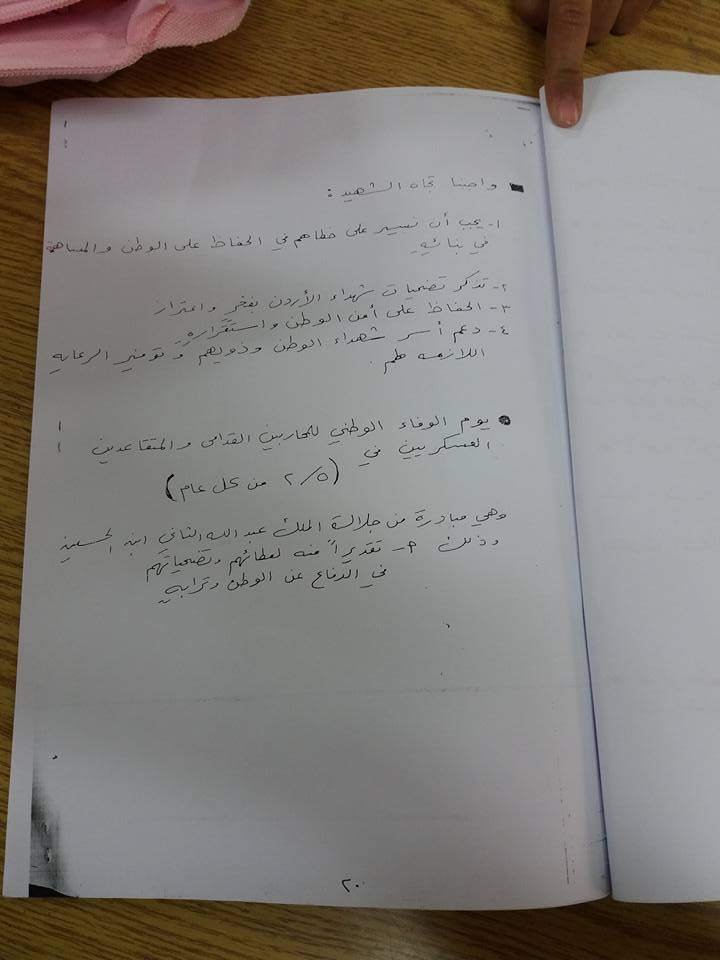 واجبنا تجاه الشهيد :
١- يجب أن نسير على خطاهم في الحفاظ على الوطن والمساهمة
في بنائهِ.
٢- تذكر تضحيات شهداء الأردن بفخرٍ واعتزاز
٣- الحفاظ على أمن الوطن واستقرارهِ
٤- دعم أسر شهداء الوطن وذويهم وتوفير الرعايه
اللازمه لهم.
يوم الوفاء الوطني للمحاربين القدامى والمتقاعدين
العسكريين في (٢/١٥ من كل عام)
وهي مبادرة من جلالة الملك عبد الله الثاني ابن الحسين
وذلك تقديراً منه لعطائهم وتضحياتهم
في الدفاع عن الوطن وترابهِ
٢٠